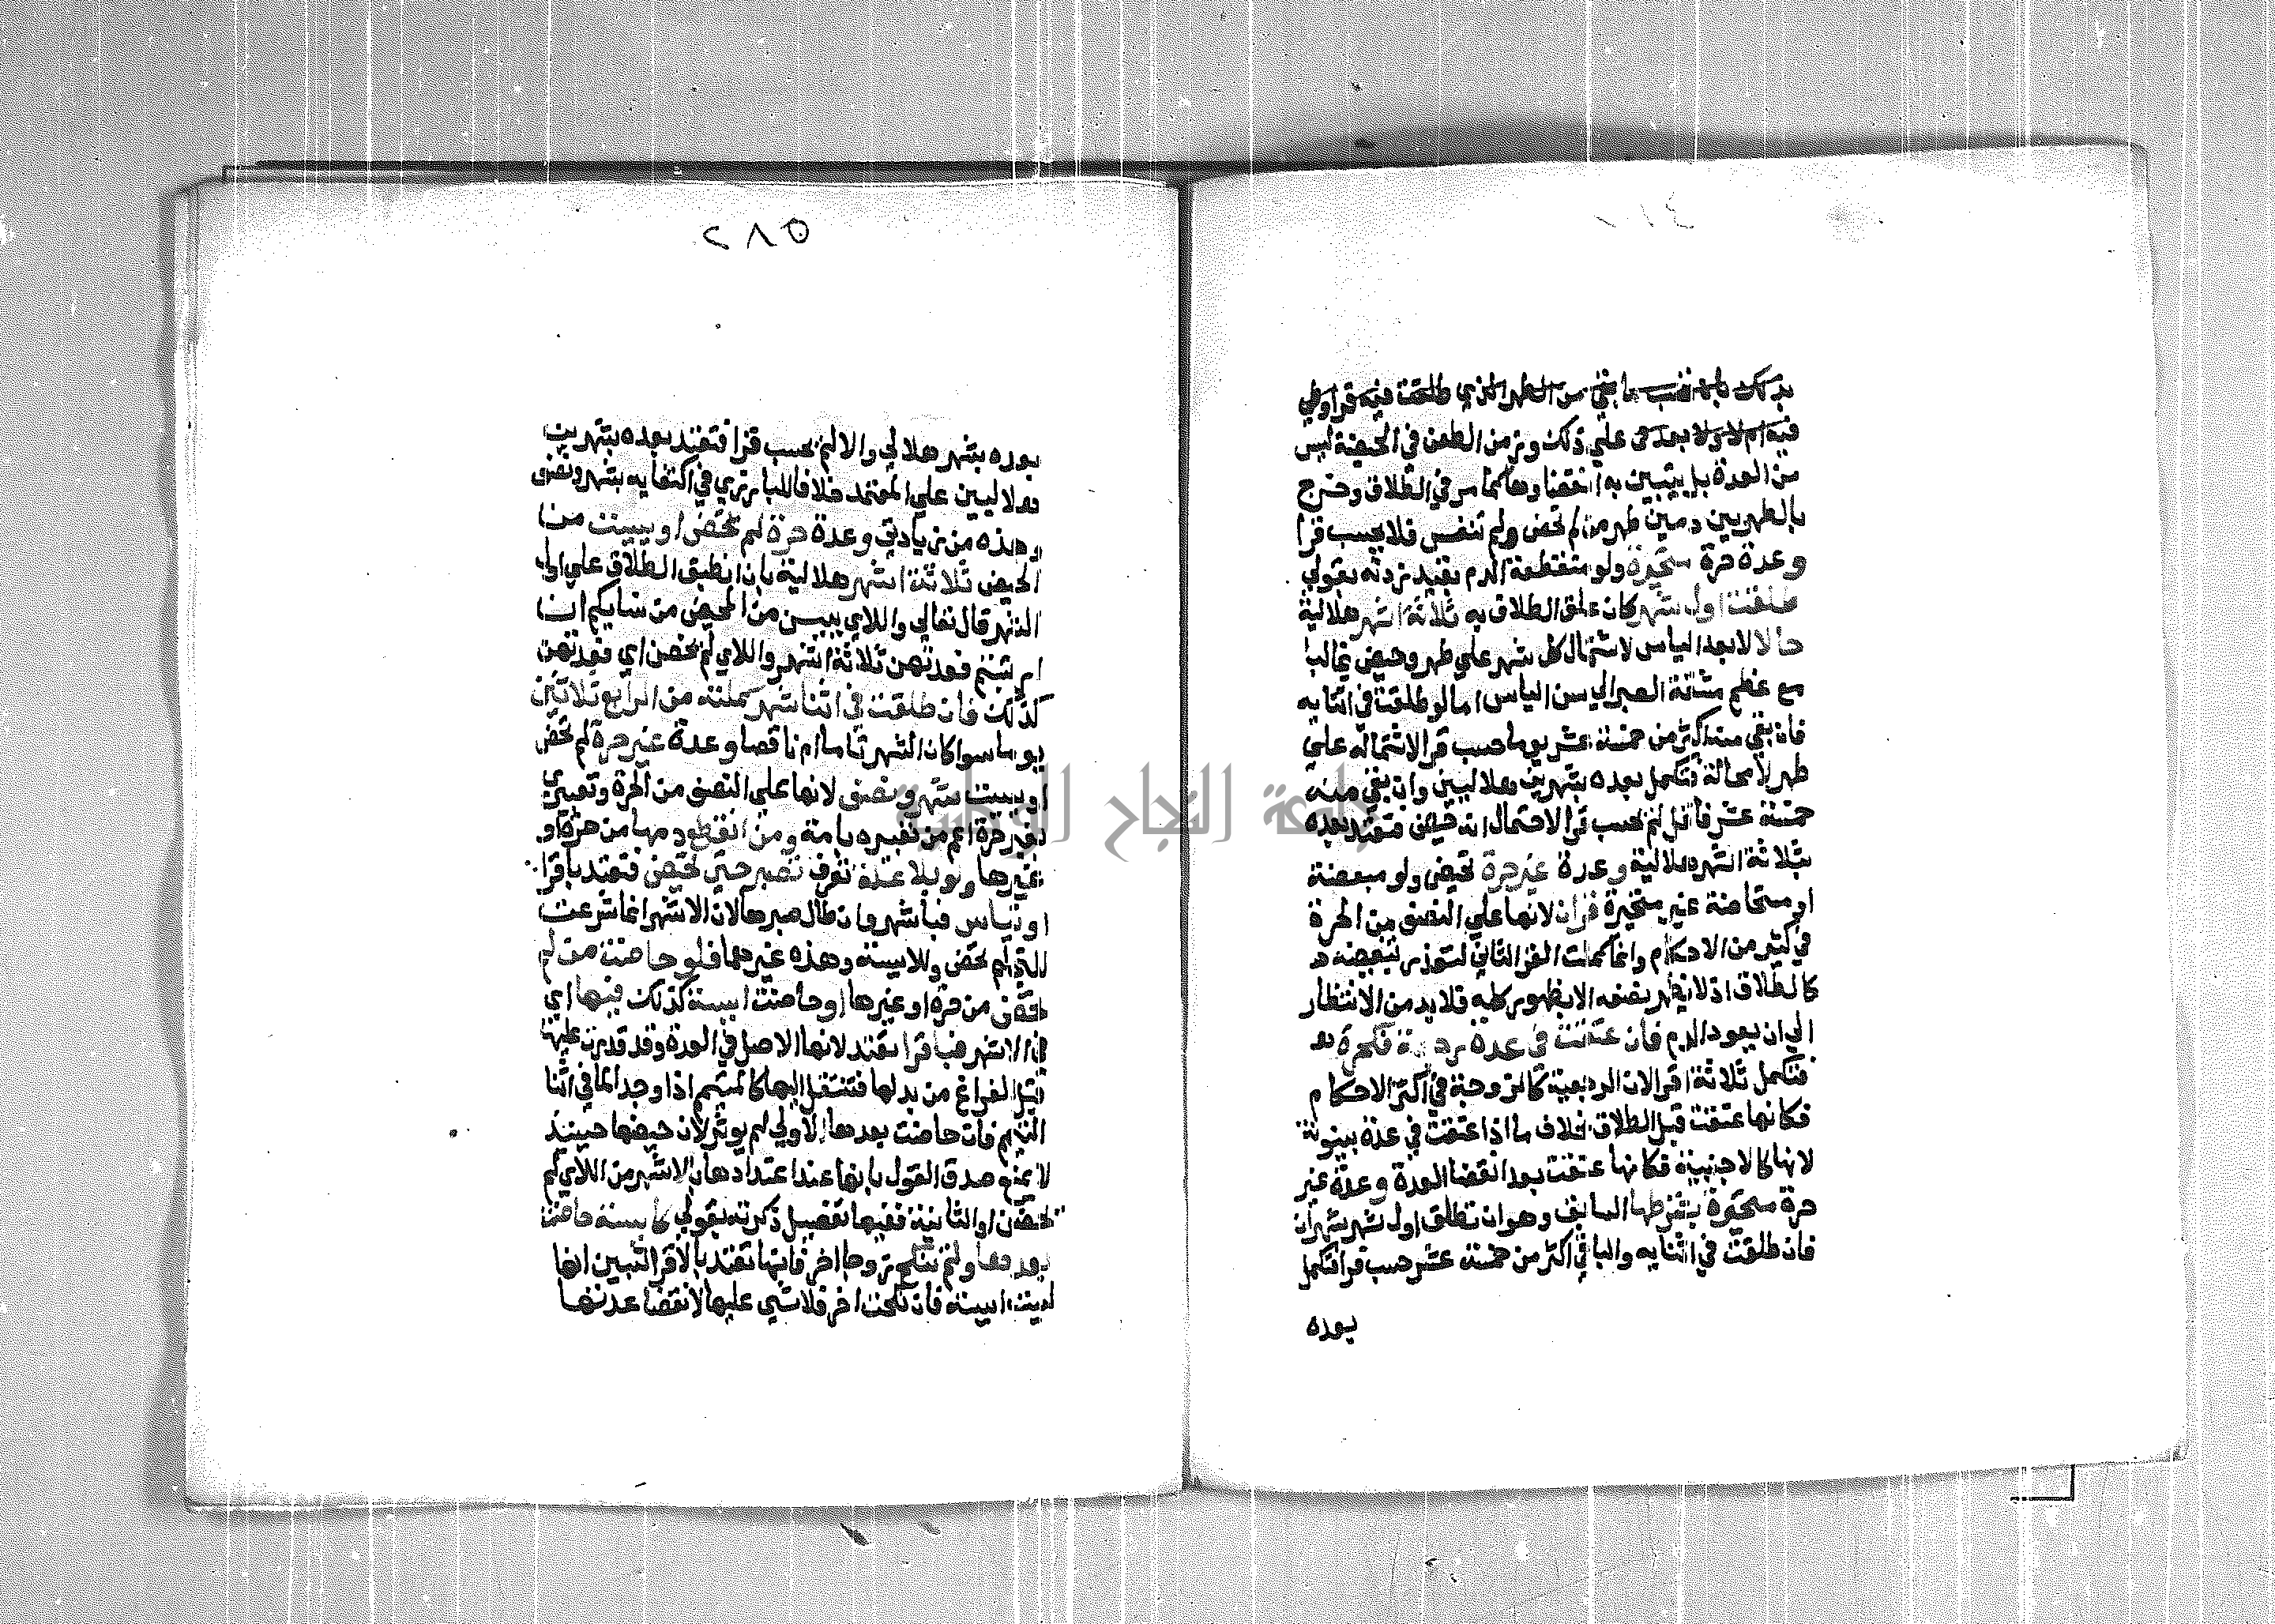 بذلك بل يحسب ما بقي من الطهر الذي طلقت فيه قرا وطي
فيه ام لا ولا بعد في على ذلك وزمن الطعن في الحيضة ليس
من العدة بل يتبين به انقضاوها كما مر في الطلاق وخرج
بالطهر بين دمين طهر من لم تحض ولم تنفس فلا يحسب قرا
وعدة حرة متحيرة ولو متقطعة الدم بقيد زدته بقولي
طلقت اول شهر كان علق الطلاق به ثلاثة اشهر هلالية
حالا لا بعد الياس لاشتمال كل شهر على طهر وحيض غالبا
مع عظم مشقة الصبر الي سن الياس اما لو طلقت في اثنايه
فان بقي منه اكثر من خمسة عشر يوما حسب قرا لاشتماله علي
طهر لا محالة فتكمل بعده بشهرين هلاليين وان بقي منه
خمسة عشر فاقل لم يحسب قرا لاحتمال انه حيض فتعتد بعده
بثلاثة اشهر هلالية وعدة غير حرة تحيض ولو مبعضة
او مستحاضة غير متحيرة قران لانها علي النصف من الحرة
في كثير من الاحكام وانما كملت القر الثاني لتعذر تبعيضه
كالطلاق اذ لا يظهر نصفه الا بظهور كله فلا بد من الانتظار
الي ان يعود الدم فان عتقت في عدة رجعية فكحرة
فتكمل ثلاثة اقرا لان الرجعية كالزوجة في اكثر الاحكام
فكانها عتقت قبل الطلاق بخلاف ما اذا عتقت في عدة بينونة
لانها كالاجنبية فكانها عتقت بعد انقضا العدة وعدة غير
حرة متحيرة بشرطها السابق وهو ان تطلق اول شهر شهران
فان طلقت في اثنايه والباقي اكثر من خمسة عشر حسب قرا فتكمل
بعده
٢٨٥
بعده بشهر هلالي والا لم يحسب قرا فتعتد بعده بشهرين
هلاليين علي المعتمد خلافا للبارزي في اكتفايه بشهر ونصف
وهذه من زيادتي وعدة حرة لم تحض او ييست من
الحيض ثلاثة اشهر هلالية بان انطبق الطلاق علي اول
الشهر قال تعالي واللاي ييسن من المحيض من نسايكم ان
ارتبتم فعدتهن ثلاثة اشهر واللاي لم يحضن اي فعدتهن
كذلك فان طلقت في اثنا شهر كملته من الرابع ثلاثين
يوما سوا كان الشهر تاما ام ناقصا وعدة غير حرة لم تحض
او ييست شهر ونصف لانها علي النصف من الحرة وتعبيري
بغير حرة اعم من تعبيره بامة ومن انقطع دمها من حرة او
غيرها ولو بلا علة تعرف تصبر حتى تحيض فتعتد باقرا
او تياس فباشهر وان طال صبرها لان الاشهر انما شرعت
للتي لم تحض وللايسة وهذه غيرهما فلو حاضت من لم
تحض من حرة او غيرها او حاضت ايسة كذلك فيها اي
في الاشهر فباقرا تعتد لانها الاصل في العدة وقد قدرت عليها
قبل الفراغ من بدلها فتنتقل اليها كالمتيمم اذا وجد الما في اثنا
التيمم فان حاضت بعدها الاولي لم يوثر لان حيضها حينيذ
لا يمنع صدق القول بانها عند اعتدادها بالاشهر من اللاي لم
يحضن او الثانية ففيها تفصيل ذكرته بقولي كايسة حاضت
بعدها ولم تنكح زوجا اخر فانها تعتد بالاقرا لتبين انها
ليست ايسة فان نكحت اخر فلا شي عليها لانقضا عدتها
جامعة النجاح الوطنية